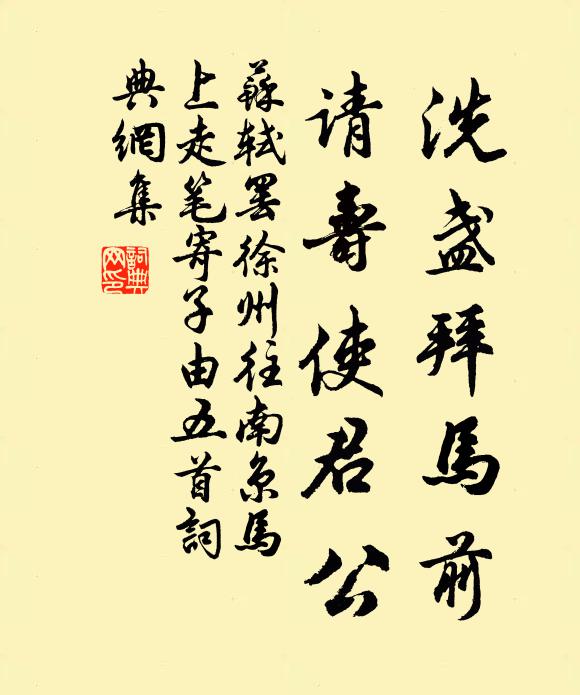 洗盏拜馬前
请壽使君公
蘇轼罢徐州往南京馬
上走笔寄子由五首詞
典網集
詞典
网印